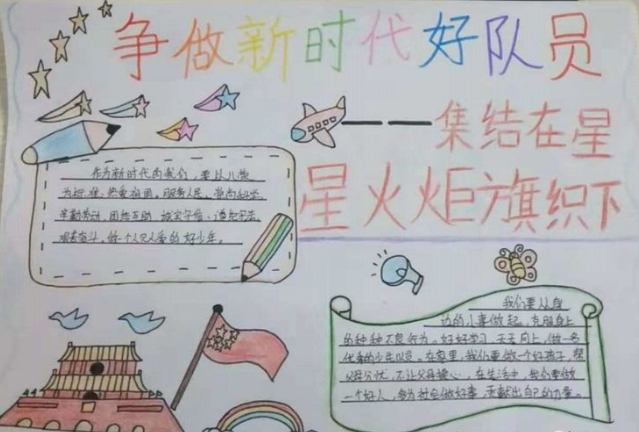 争做新时代好队员
——集结在星
星火炬旗织下
作为新时代的我们，要从小学
为标准，热爱祖国，服务人民，崇尚科学
辛勤劳动，团结互助，诚实守信，遵纪守法
艰苦奋斗，做一个人见人爱的好少年。
我们要从身
边的小事做起，克服身上
的种种不良行为，好好学习，天天向上，做一名
优秀的少年队员，在家里，我们要做一个好孩子，帮
父母分忧，不让父母操心，在生活中，我们要做
一个好人，多为社会做好事，贡献出自己的力量。